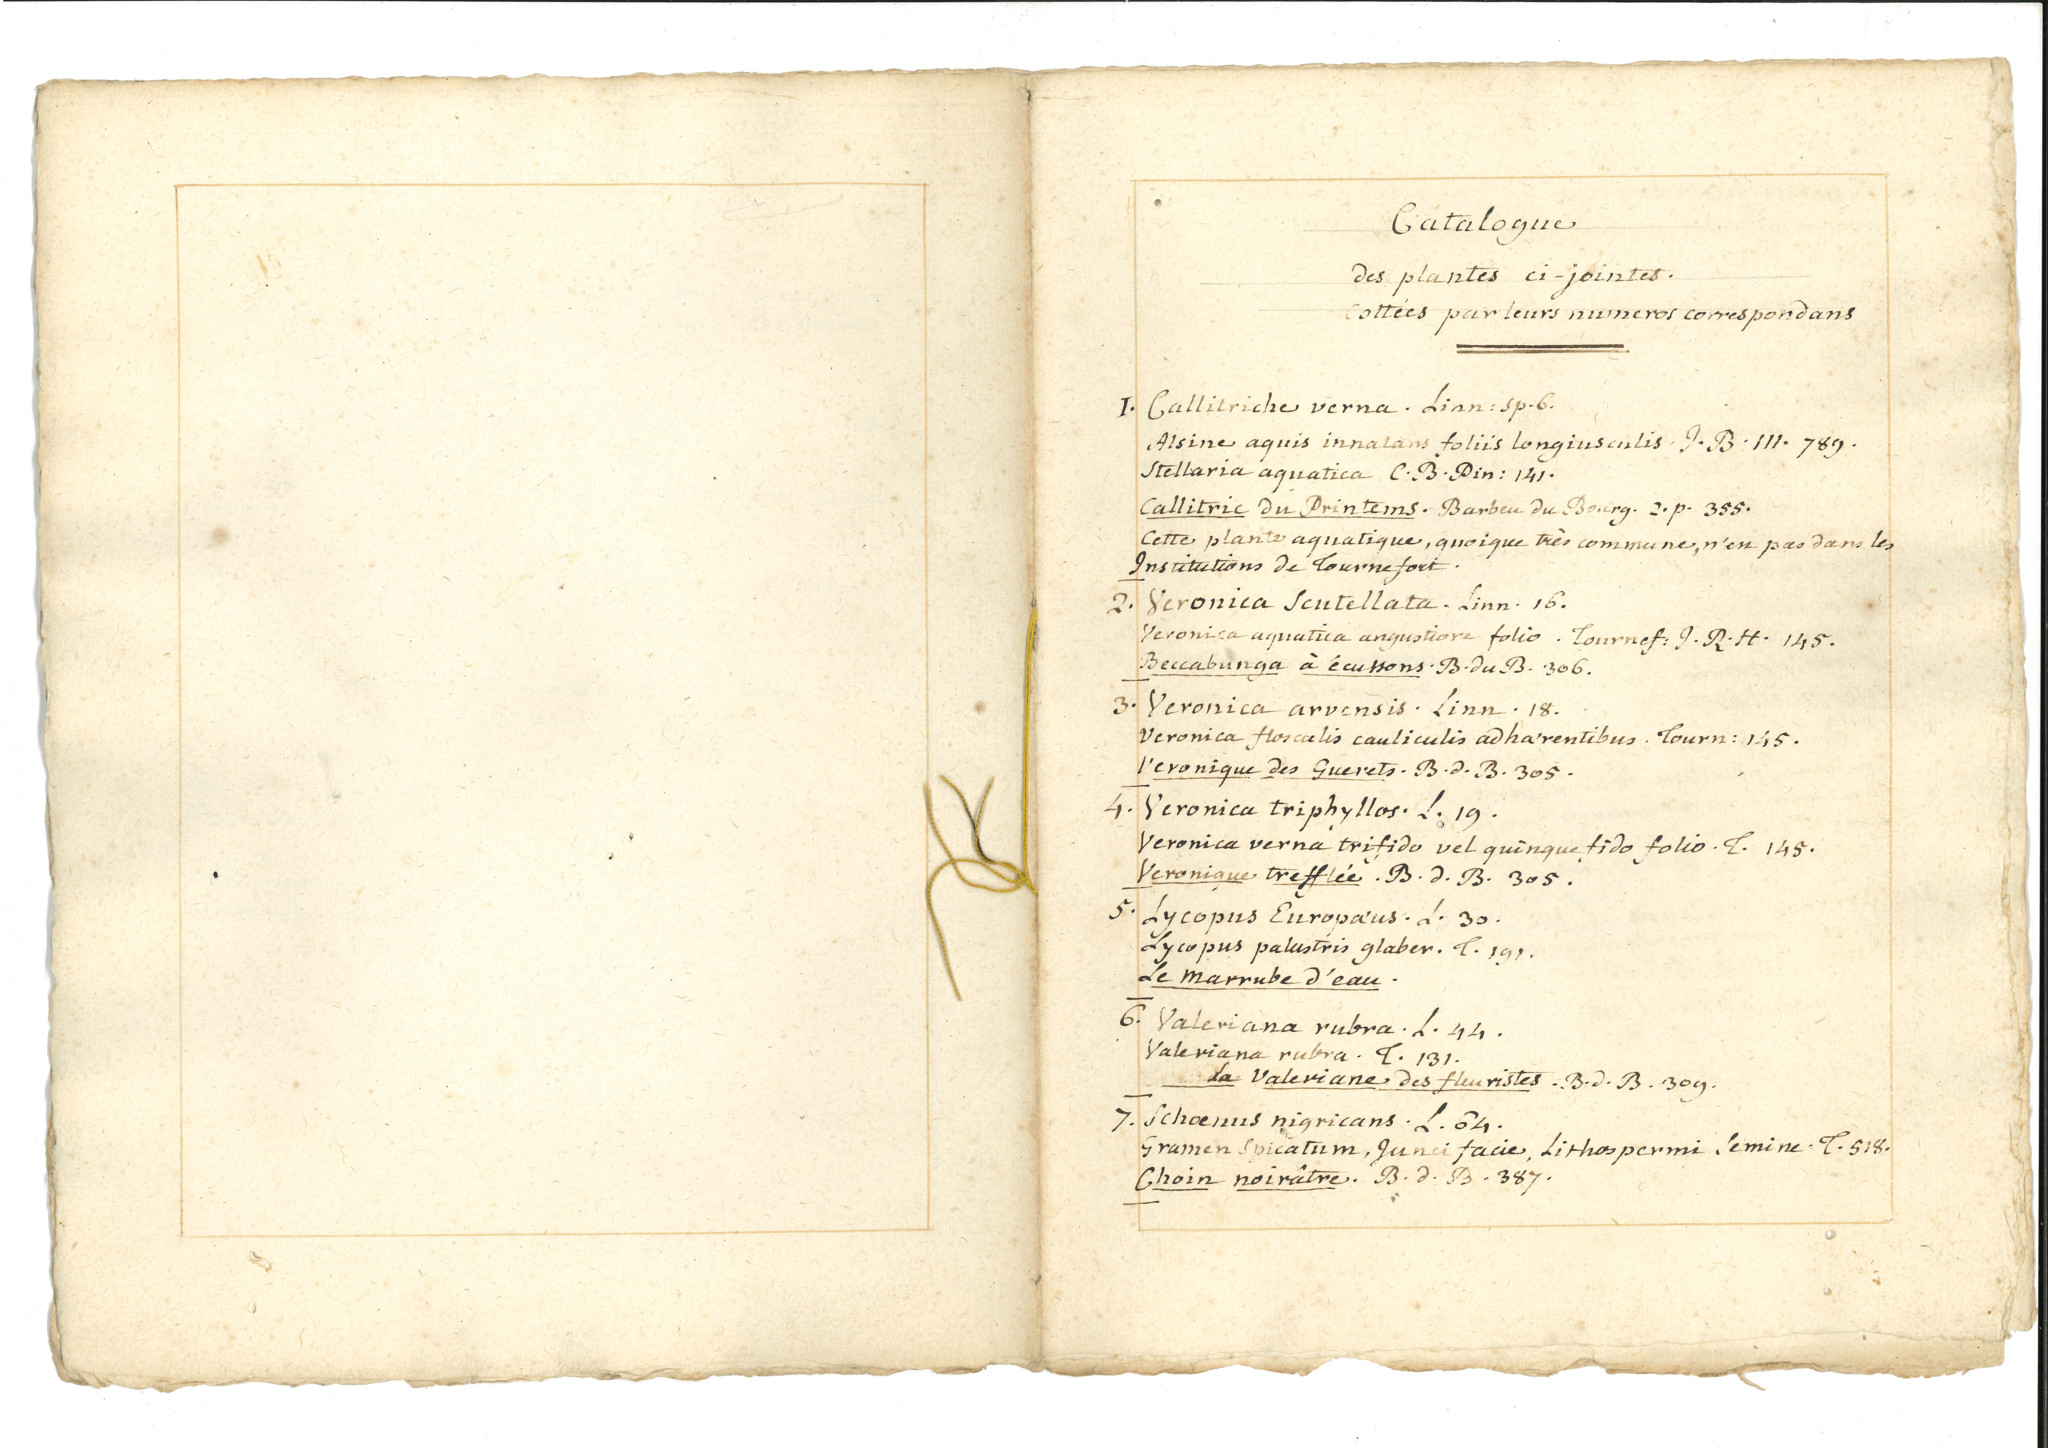 Catalogue
des plantes ci-jointes.
Cottées par leurs numeros correspondans
1. Callitriche verna. Linn: sp. 6.
Alsine aquis innatans foliis longiusculis. J. B. III. 789.
Stellaria aquatica C. B. Pin: 141.
Callitric du Printems. Barbeu du Bourg. 2. p. 355.
Cette plante aquatique, quoique très commune, n'est pas dans les
Institutions de Tournefort.
2. Veronica Scutellata. Linn. 16.
Veronica aquatica angustiore folio. Tournef: J. R. H. 145.
Beccabunga à écussons. B. du B. 306.
3. Veronica arvensis. Linn. 18.
Veronica flosculis cauliculis adhærentibus. Tourn: 145.
Veronique des Guerets. B. d. B. 305.
4. Veronica triphyllos. L. 19.
Veronica verna trifido vel quinquefido folio. T. 145.
Veronique trefflée. B. d. B. 305.
5. Lycopus Europæus. L. 30.
Lycopus palustris glaber. T. 191.
Le Marrube d'eau.
6. Valeriana rubra. L. 44.
Valeriana rubra. T. 131.
La Valeriane des fleuristes. B. d. B. 309.
7. Schoenus nigricans. L. 64.
Gramen Spicatum, Junci facie, Lithospermi Semine. T. 518.
Choin noirâtre. B. d. B. 387.